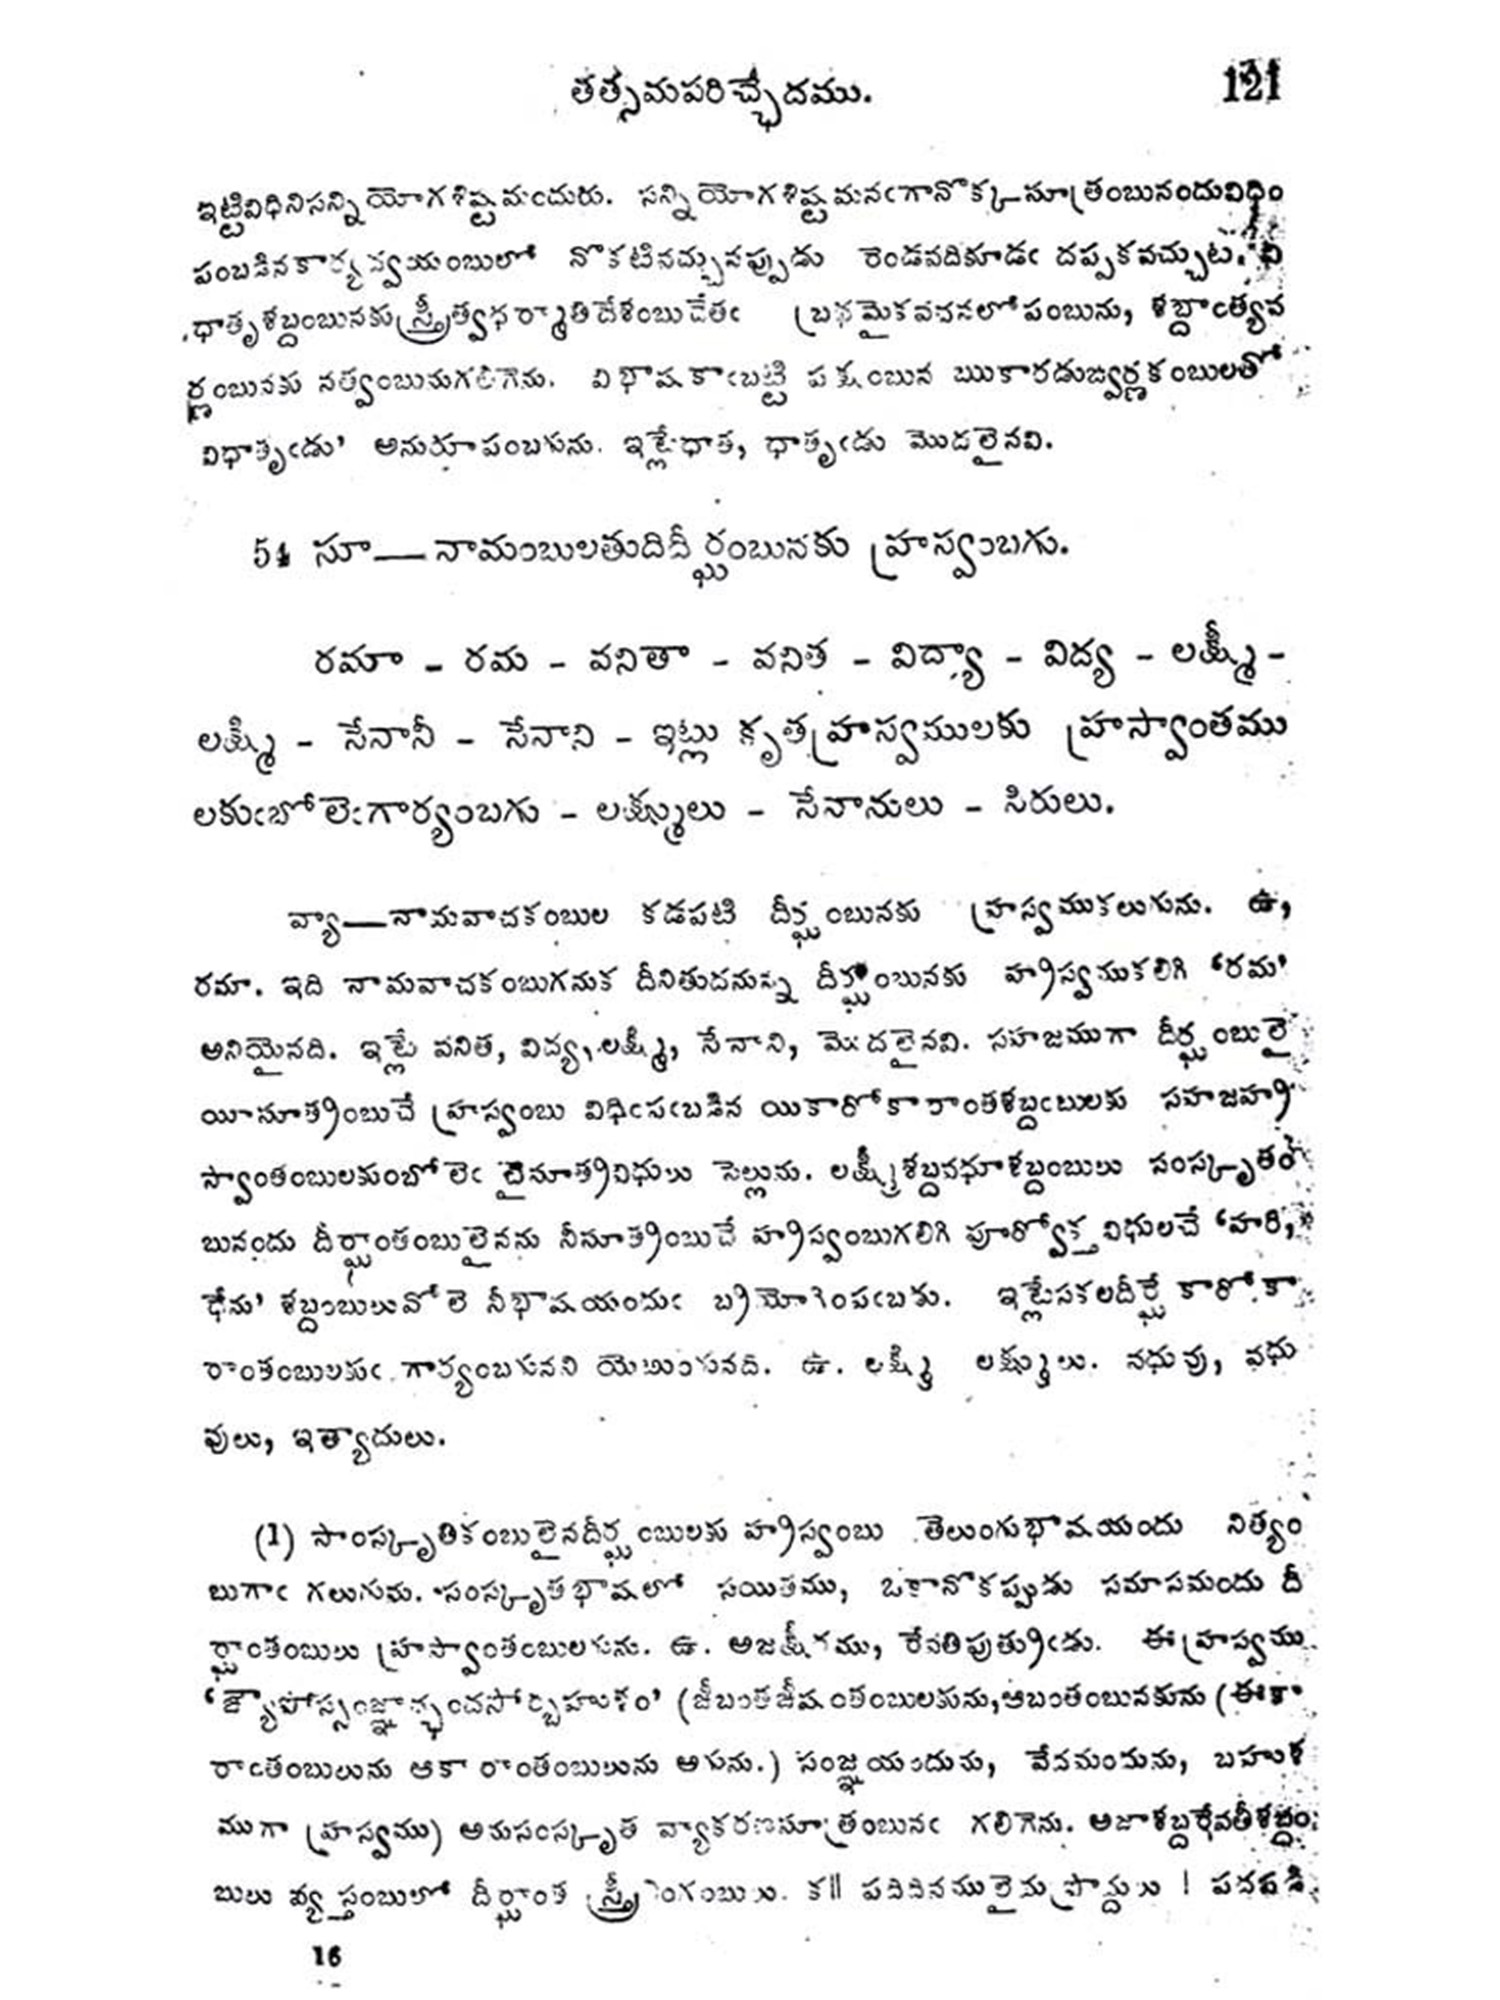 తత్సమపరిచ్ఛేదము. 121
ఇట్టివిధినిసన్నియోగశిష్టమందురు. సన్నియోగశిష్టమనఁగానొక్కసూత్రంబునందువిధిం
పంబడినకార్యద్వయంబులో నొకటివచ్చునప్పుడు రెండవదికూడఁ దప్పకవచ్చుట. వి
ధాతృశబ్దంబునకుస్త్రీత్వధర్మాతిదేశంబుచేతఁ బ్రథమైకవచనలోపంబును, శబ్దాంత్యవ
ర్ణంబునకు నత్వంబునుగలిగెను. విభాషకాఁబట్టి పక్షంబున ఋకారడుఙ్వర్ణకంబులతో
విధాతృఁడు' అనురూపంబగును. ఇట్లేధాత, ధాతృఁడు మొదలైనవి.
54 సూ—నామంబులతుదిదీర్ఘంబునకు హ్రస్వంబగు.
రమా - రమ - వనితా - వనిత - విద్యా - విద్య - లక్ష్మీ -
లక్ష్మి - సేనానీ - సేనాని - ఇట్లు కృతహ్రస్వములకు హ్రస్వాంతము
లకుఁబోలెఁగార్యంబగు - లక్ష్ములు - సేనానులు - సిరులు.
వ్యా—నామవాచకంబుల కడపటి దీర్ఘంబునకు హ్రస్వముకలుగును. ఉ,
రమా. ఇది నామవాచకంబుగనుక దీనితుదనున్న దీర్ఘంబునకు హ్రస్వముకలిగి 'రమ'
అనియైనది. ఇట్లే వనిత, విద్య, లక్ష్మి, సేనాని, మొదలైనవి. సహజముగా దీర్ఘంబులై
యీసూత్రంబుచే హ్రస్వంబు విధింపఁబడిన యికారోకారాంతశబ్దంబులకు సహజహ్ర
స్వాంతంబులకుంబోలెఁ బైసూత్రవిధులు సెల్లును. లక్ష్మీశబ్దవధూశబ్దంబులు సంస్కృతం
బునందు దీర్ఘాంతంబులైనను నీసూత్రంబుచే హ్రస్వంబుగలిగి పూర్వోక్తవిధులచే 'హరి,
ధేను' శబ్దంబులువోలె నీభాషయందుఁ బ్రయోగింపఁబడు. ఇట్లేసకలదీర్ఘే కారోకా
రాంతంబులకుఁ గార్యంబగునని యెఱుంగునది. ఉ. లక్ష్మి లక్ష్ములు. వధువు, వధు
వులు, ఇత్యాదులు.
(1) సాంస్కృతికంబులైనదీర్ఘంబులకు హ్రస్వంబు తెలుంగుభాషయందు నిత్యం
బుగాఁ గలుగును. సంస్కృతభాషలో సయితము, ఒకానొకప్పుడు సమాసమందు దీ
ర్ఘాంతంబులు హ్రస్వాంతంబులగును. ఉ. అజక్షీరము, రేవతిపుత్రుఁడు. ఈహ్రస్వము
'ఙ్యాపోస్సంజ్ఞాచ్ఛందసోర్బహుళం' (ఙీబంతఙీషంతంబులకును, ఆబంతంబునకును (ఈకా
రాంతంబులును ఆకారాంతంబులును అగును.) సంజ్ఞయందును, వేదమందును, బహుళ
ముగా హ్రస్వము) అనుసంస్కృత వ్యాకరణసూత్రంబునఁ గలిగెను. అజాశబ్దరేవతీశబ్దం
బులు వ్యస్తంబులో దీర్ఘాంత స్త్రీలింగంబులు. క॥ పదిదినములైన ప్రొద్దులు ।
16